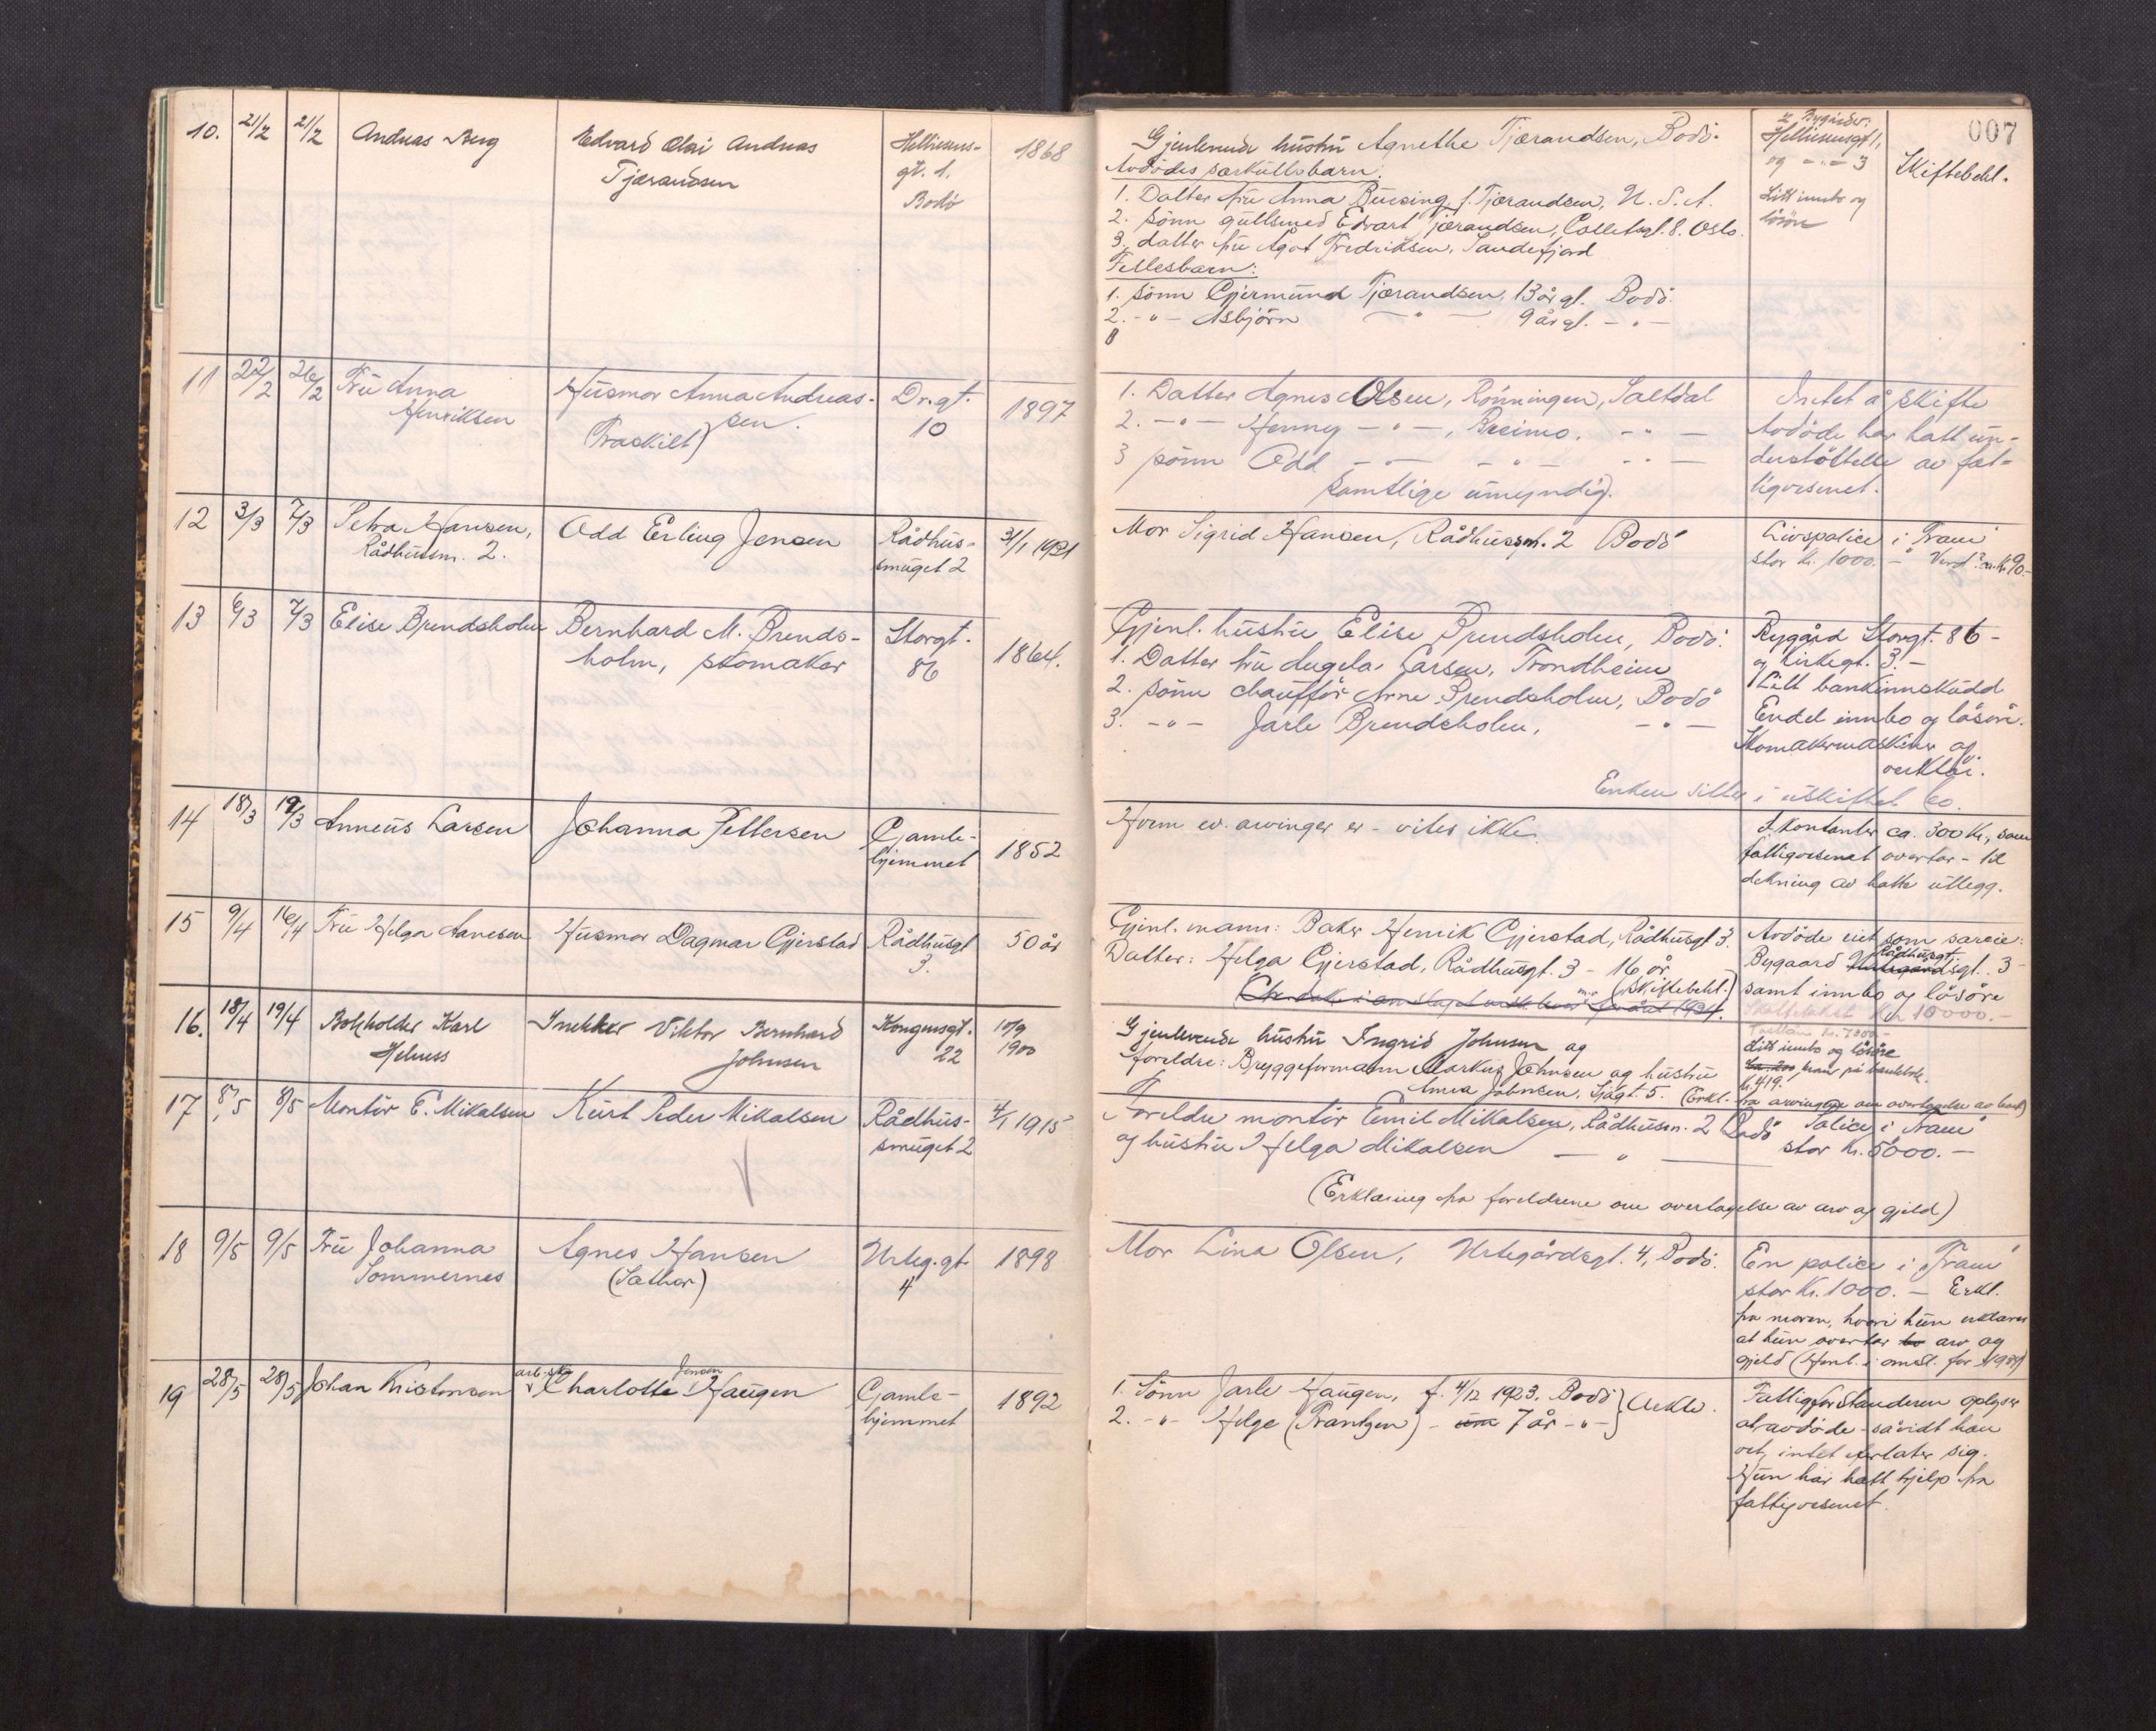 007
10. 21/2 21/2 Andreas Berg
Edvard Olai Andreas
Tjærandsen
Helliesens-
gt. 1.
Bodö
1868
Gjenlevende hustru Agnethe Tjærandsen, Bodö.
Avdödes særkullsbarn:
1. Datter fru Anna Buesing f. Tjærandsen, U. S. A.
2. Sönn gullsmed Edvart Tjærandsen, Colletsgt. 8. Oslo.
3. datter fru Agot Fredriksen, Sandefjord
Fellesbarn:
1. Sönn Gjermund Tjærandsen, 13 år gl. Bodö.
2. -"- Asbjörn -"- 9 år gl. -"-
2 Bygårder:
Helliesensgt 1,
og -"- 3
Litt innbo og
lösöre
Skiftebehl.
11 22/2 26/2 Fru Anna
Henriksen
Husmor Anna Andreas-
sen.
(Fraskilt)
Dr.gt.
10
1897
1. Datter Agnes Olsen, Rönningen, Saltdal
2. -"- Henny -"-, Breimo. -"-
3 sönn Odd -"- -"- -"-
Samtlige umyndig.
Intet å skifte
Avdöde har hatt un-
derstöttelse av fat-
tigvesenet.
12 3/3 7/3 Petra Hansen,
Rådhussm. 2.
Odd Erling Jensen
Rådhus-
smuget 2
31/1 1921
Mor Sigrid Hansen, Rådhussm. 2 Bodö
Livspolice i "Fram"
stor kr. 1000.- Verd? ca. kr. 90.-
13 6/3 7/3 Elise Brendsholm
Bernhard M. Brends-
holm, skomaker
Storgt.
86
1864.
Gjenl. hustru Elise Brendsholm, Bodö.
1. Datter fru Angela Larsen, Trondheim
2. sönn chaufför Arne Brendsholm, Bodö
3. -"- Jarle Brendsholm, -"-
Bygård Storgt. 86-
og Kirkegt. 3.-
Litt bankinnskudd
Endel innbo og lösöre.
Skomakermaskiner og
verktöi.
Enken sitter i uskiftet bo.
14 18/3 19/3 Anneus Larsen
Johanna Pettersen
Gamle-
hjemmet
1852
Hvem ev. arvinger er - vites ikke.
I kontanter ca. 300 kr., som
fattigvesenet overtar - til
dekning av hatte utlegg.
15 9/4 16/4 Fru Helga Aanesen
Husmor Dagmar Gjerstad
Rådhusgt
3.
50 år
Gjenl. mann: Baker Henrik Gjerstad, Rådhusgt 3.
Datter: Helga Gjerstad, Rådhusgt. 3 - 16 år
(Skiftebehl.)
Avdöde eiet som særeie:
Rådhusgt.
Bygaard 3
samt innbo og lösöre
Skattetakst kr 10000.-
16. 18/4 19/4 Bokholder Karl
Helness
Snekker Viktor Bernhard
Johnsen
Kongensgt.
22
10/9
1900
Gjenlevende hustru Ingrid Johnsen og
foreldre: Bryggeformann Markus Johnsen og hustru
Anna Johnsen, Sjögt. 5. (Erkl. fra arvingene om overtagelse av boet)
Litt innbo og lösöre
kr. 419.
17 8/5 8/5 Montör E. Mikalsen
Kurt Peder Mikalsen
Rådhus-
smuget 2
4/1 1915
Foreldre montör Emil Mikalsen, Rådhussm. 2 Bodö
og hustru Helga Mikalsen -"-
Police i "Fram"
stor kr. 5000.-
(Erklæring fra foreldrene om overtagelse av arv og gjeld)
18 9/5 9/5 Fru Johanna
Sommernes
Agnes Hansen
(Sæther)
Urteg.gt.
4
1898
Mor Lina Olsen, Urtegårdsgt. 4, Bodö.
En police i "Fram"
stor kr. 1000.- Erkl.
fra moren, hvori hun erklærer
at hun overtar bo arv og
gjeld (Henl. i omsl. for 1934)
19 28/5 28/5 Johan Kristensen
arb.ske
Jensen
Charlotte Haugen
Gamle-
hjemmet
1892
1. Sönn Jarle Haugen, f. 4/12 1923. Bodö
2. -"- Helge (Frantzen) - 7 år -"-
} Uekte.
Fattigforstanderen oplyser
at avdöde - såvidt han
vet, intet efterlater sig.
Hun har hatt hjelp fra
fattigvesenet.